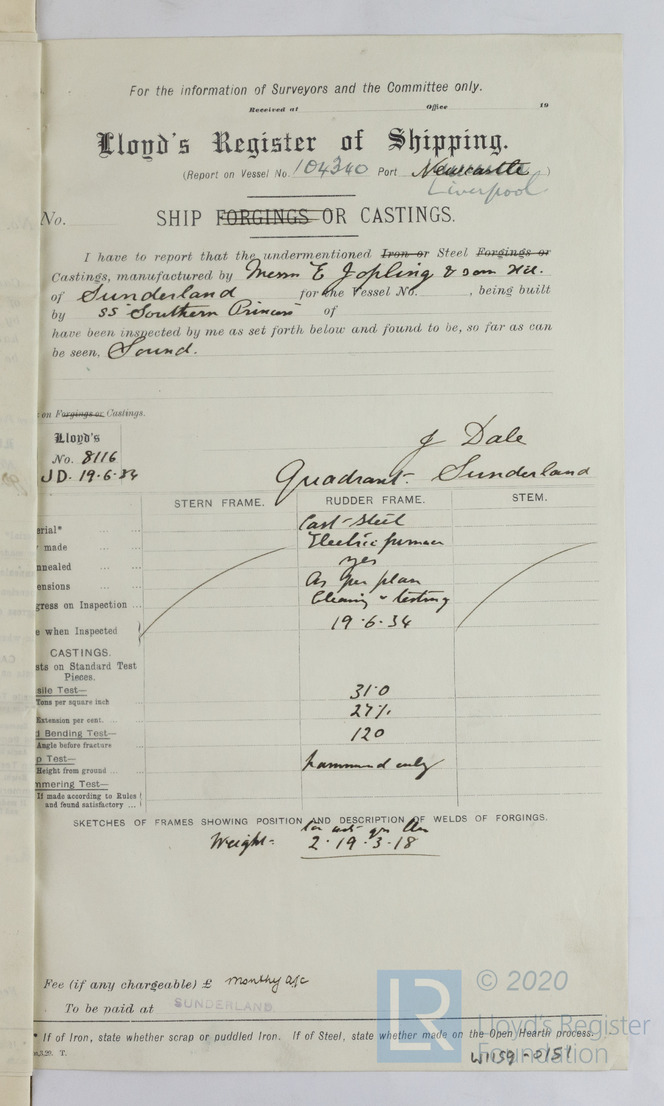 For the information of Surveyors and the Committee only.
Received at Office 19
Lloyd's Register of Shipping.
(Report on Vessel No. 104340 Port Newcastle )
Liverpool
No. SHIP FORGINGS OR CASTINGS.
I have to report that the undermentioned Iron or Steel Forgings or
Castings, manufactured by Messrs E Jopling & Sons Ltd.
of Sunderland for the Vessel No. , being built
by SS "Southern Princess" of
have been inspected by me as set forth below and found to be, so far as can
be seen, Sound.
on Forgings or Castings.
Lloyd's
No. 8116
JD. 19.6.34
J Dale
Quadrant. Sunderland
STERN FRAME. RUDDER FRAME. STEM.
erial* Cast Steel
made Electric furnace
nnealed yes
ensions As per plan
gress on Inspection ... Cleaning & testing
e when Inspected 19.6.34
CASTINGS.
sts on Standard Test
Pieces.
sile Test—
Tons per square inch 31.0
Extension per cent. ... 27%
d Bending Test—
Angle before fracture 120
p Test—
Height from ground ... hammered only
mmering Test—
If made according to Rules
and found satisfactory ...
SKETCHES OF FRAMES SHOWING POSITION AND DESCRIPTION OF WELDS OF FORGINGS.
Ton cwt qrs lbs
Weight = 2.19.3.18
Fee (if any chargeable) £ monthly a/c
To be paid at SUNDERLAND.
* If of Iron, state whether scrap or puddled Iron. If of Steel, state whether made on the Open Hearth process.
.3.20. T.
W1159-0151
LR © 2020
Lloyd's Register
Foundation